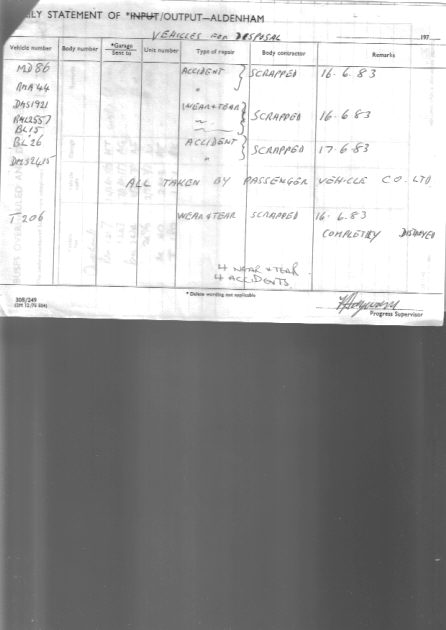 ILY STATEMENT OF *INPUT/OUTPUT—ALDENHAM
VEHICLES FOR DISPOSAL
197
Vehicle number Body number *Garage Sent to Unit number Type of repair Body contractor Remarks
MD86 ACCIDENT SCRAPPED 16.6.83
RMA44 "
DMS1921 WEAR+TEAR
RML2557 " SCRAPPED 16.6.83
BL15
BL26 ACCIDENT SCRAPPED 17.6.83
DMS2415 "
ALL TAKEN BY PASSENGER VEHICLE CO. LTD
T206 WEAR+TEAR SCRAPPED 16.6.83
COMPLETELY DESTROYED
4 WEAR + TEAR.
4 ACCIDENTS
* Delete wording not applicable
308/249
Progress Supervisor